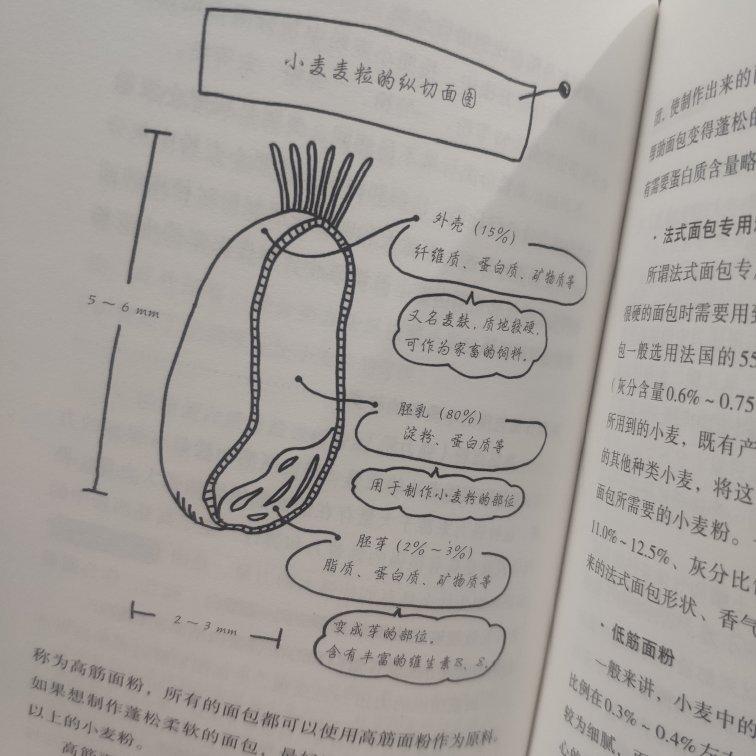 小麦麦粒的纵切面图
5～6 mm
外壳（15%）
纤维质、蛋白质、矿物质等
又名麦麸，质地较硬，
可作为家畜的饲料。
胚乳（80%）
淀粉、蛋白质等
用于制作小麦粉的部位
胚芽（2%～3%）
脂质、蛋白质、矿物质等
变成芽的部位，
含有丰富的维生素
2～3 mm
称为高筋面粉，所有的面包都可以使用高筋面粉作为原料。
如果想制作蓬松柔软的面包，最
以上的小麦粉。
高筋
团，使制作出来的
帮助面包变得蓬松的
有需要蛋白质含量略
·法式面包专用
所谓法式面包专
很硬的面包时需要用到
包一般选用法国的55
（灰分含量0.6%～0.75
所用到的小麦，既有产
的其他种类小麦，将这
面包所需要的小麦粉。
11.0%～12.5%、灰分比
来的法式面包形状、香气
·低筋面粉
一般来讲，小麦中的
比例在0.3%～0.4%左
较为细腻，
心的